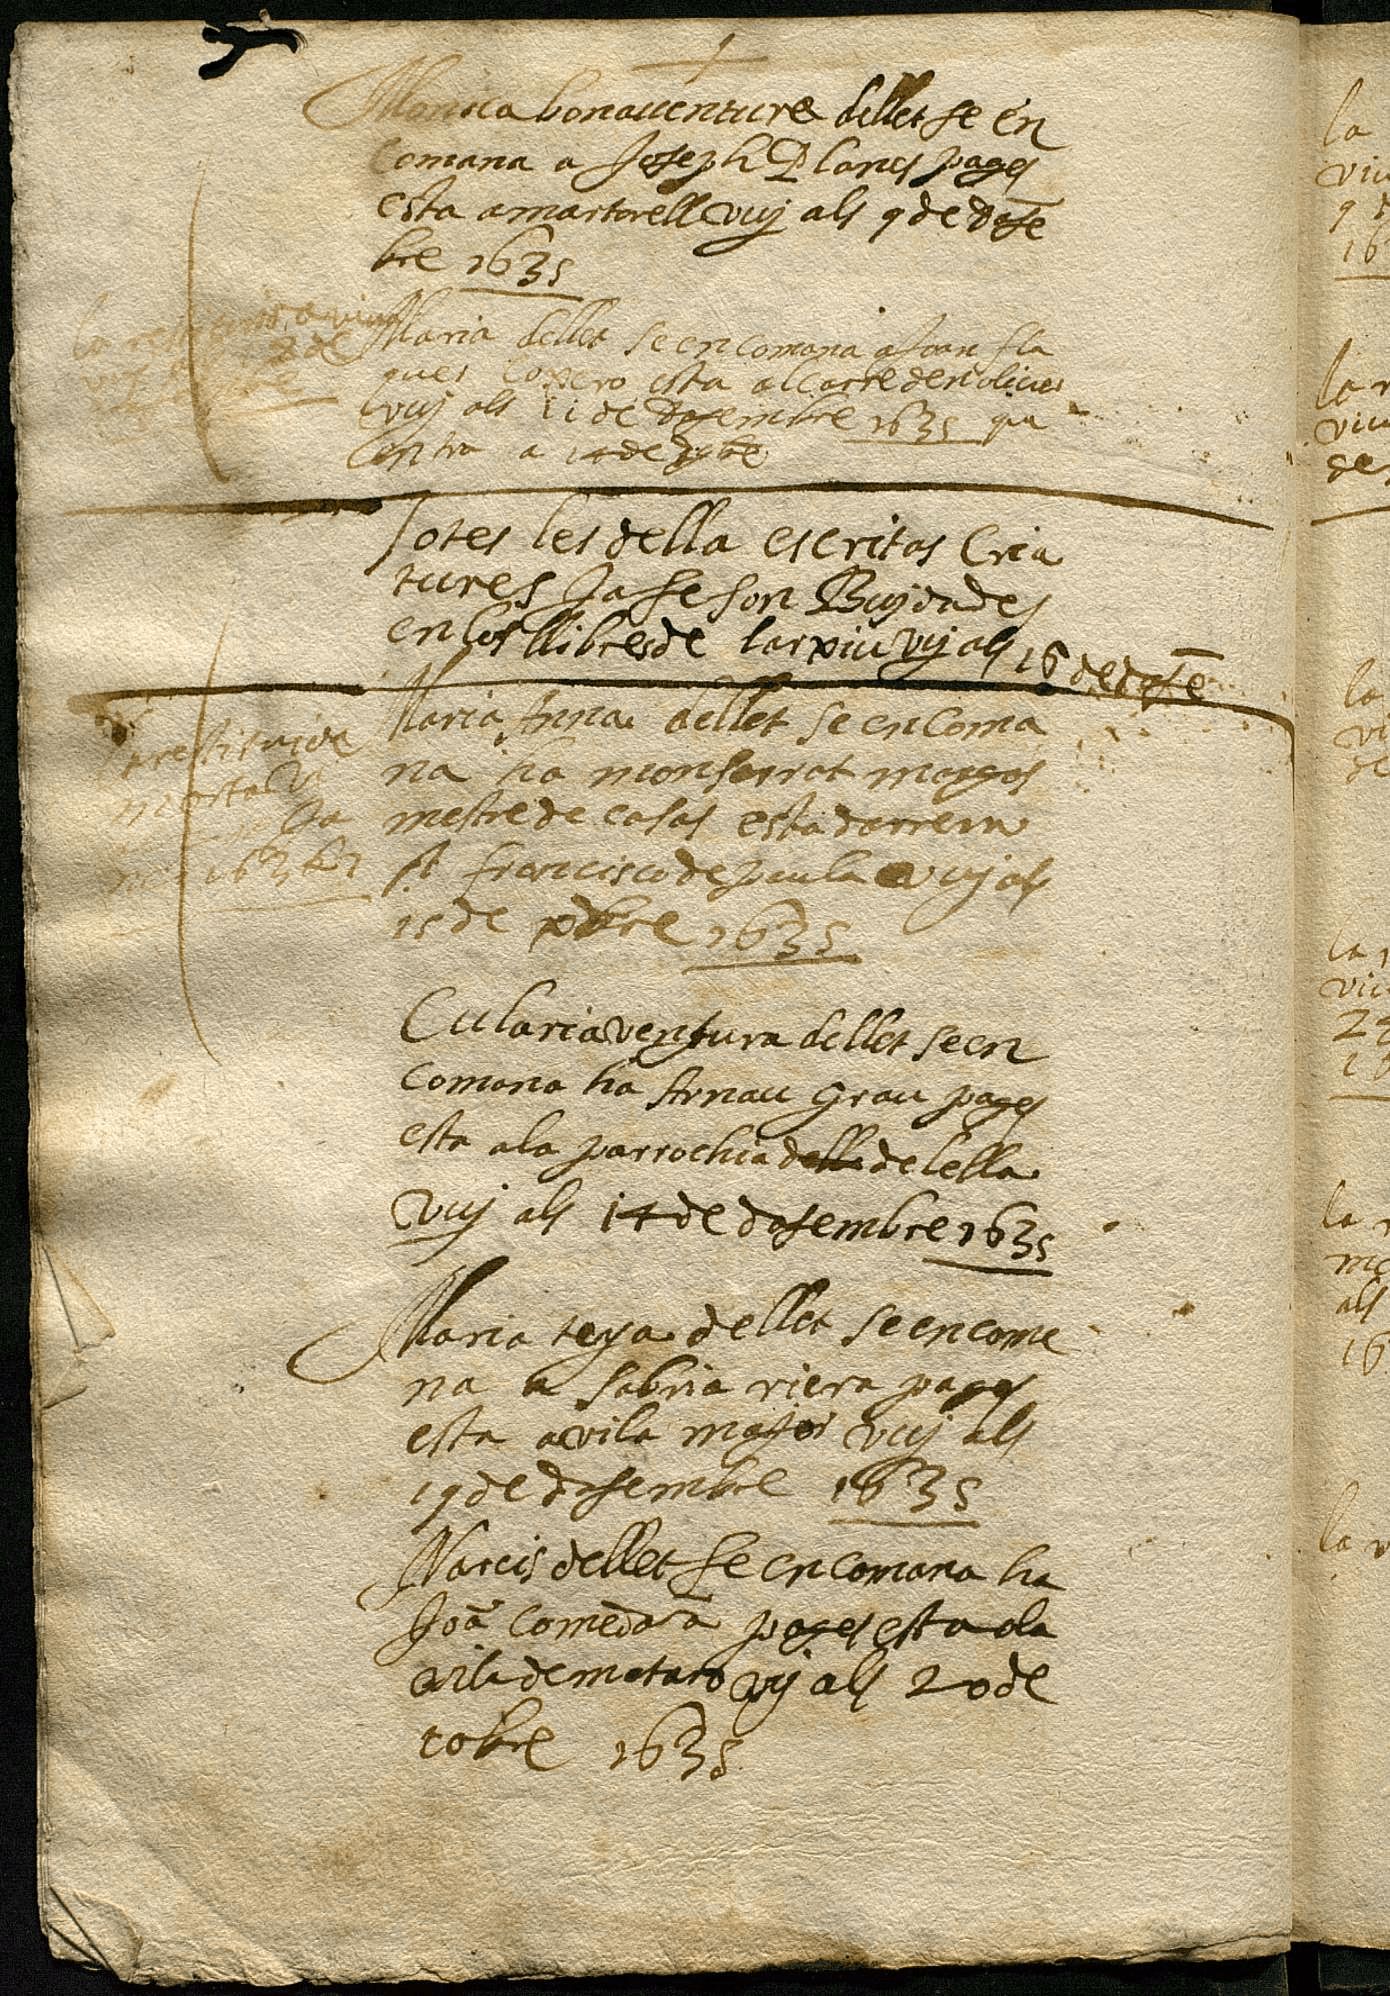 Monica bonauentura dellet se en
comana a Joseph Planes pages
esta a martorell vuj als 9 de dese
bre 1635
Maria dellet se encomana a Joan fla
ques esta al carre den oliues
vuj als 11 de desembre 1635 qu
entra a 14 de
Totes les della escritas Cria
tures Ja se son Buydades
en los llibres de larxiu vuj als 16 de dese
Maria Anna dellet se encoma
na ha monserrat
mestre de casas esta darrera
st francisco de paula vuj als
15 de xbre 1635
la restituida
morta
1636
Eularia ventura dellet se en
comana ha Arnau Grau pages
esta a la parrochia de lella
vuj als 14 de desembre 1635
Maria teya dellet se encoma
na a sabria riera pages
esta a vila major vuj als
19 de desembre 1635
Narcis dellet se encomana ha
Joã pages esta a la
vila de mataro vuj als 20 de
1635
la
viu
9
16
la
viu
de
la
la
viu
22
la
als
16
la